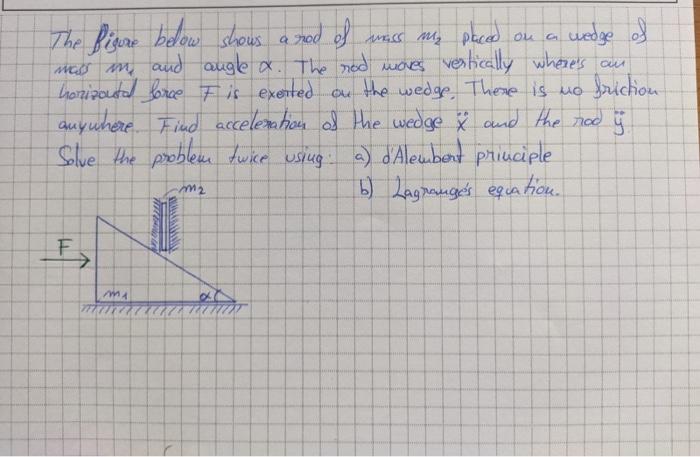 The figure below shows a rod of mass m₂ placed on a wedge of
mass m₁ and angle α. The rod moves vertically where's an
horizontal force F is exerted on the wedge. There is no friction
anywhere. Find acceleration of the wedge ẍ and the rod ÿ
Solve the problem twice using: a) d'Alembert principle
b) Lagrange's equation.
m₂
F
m₁
α